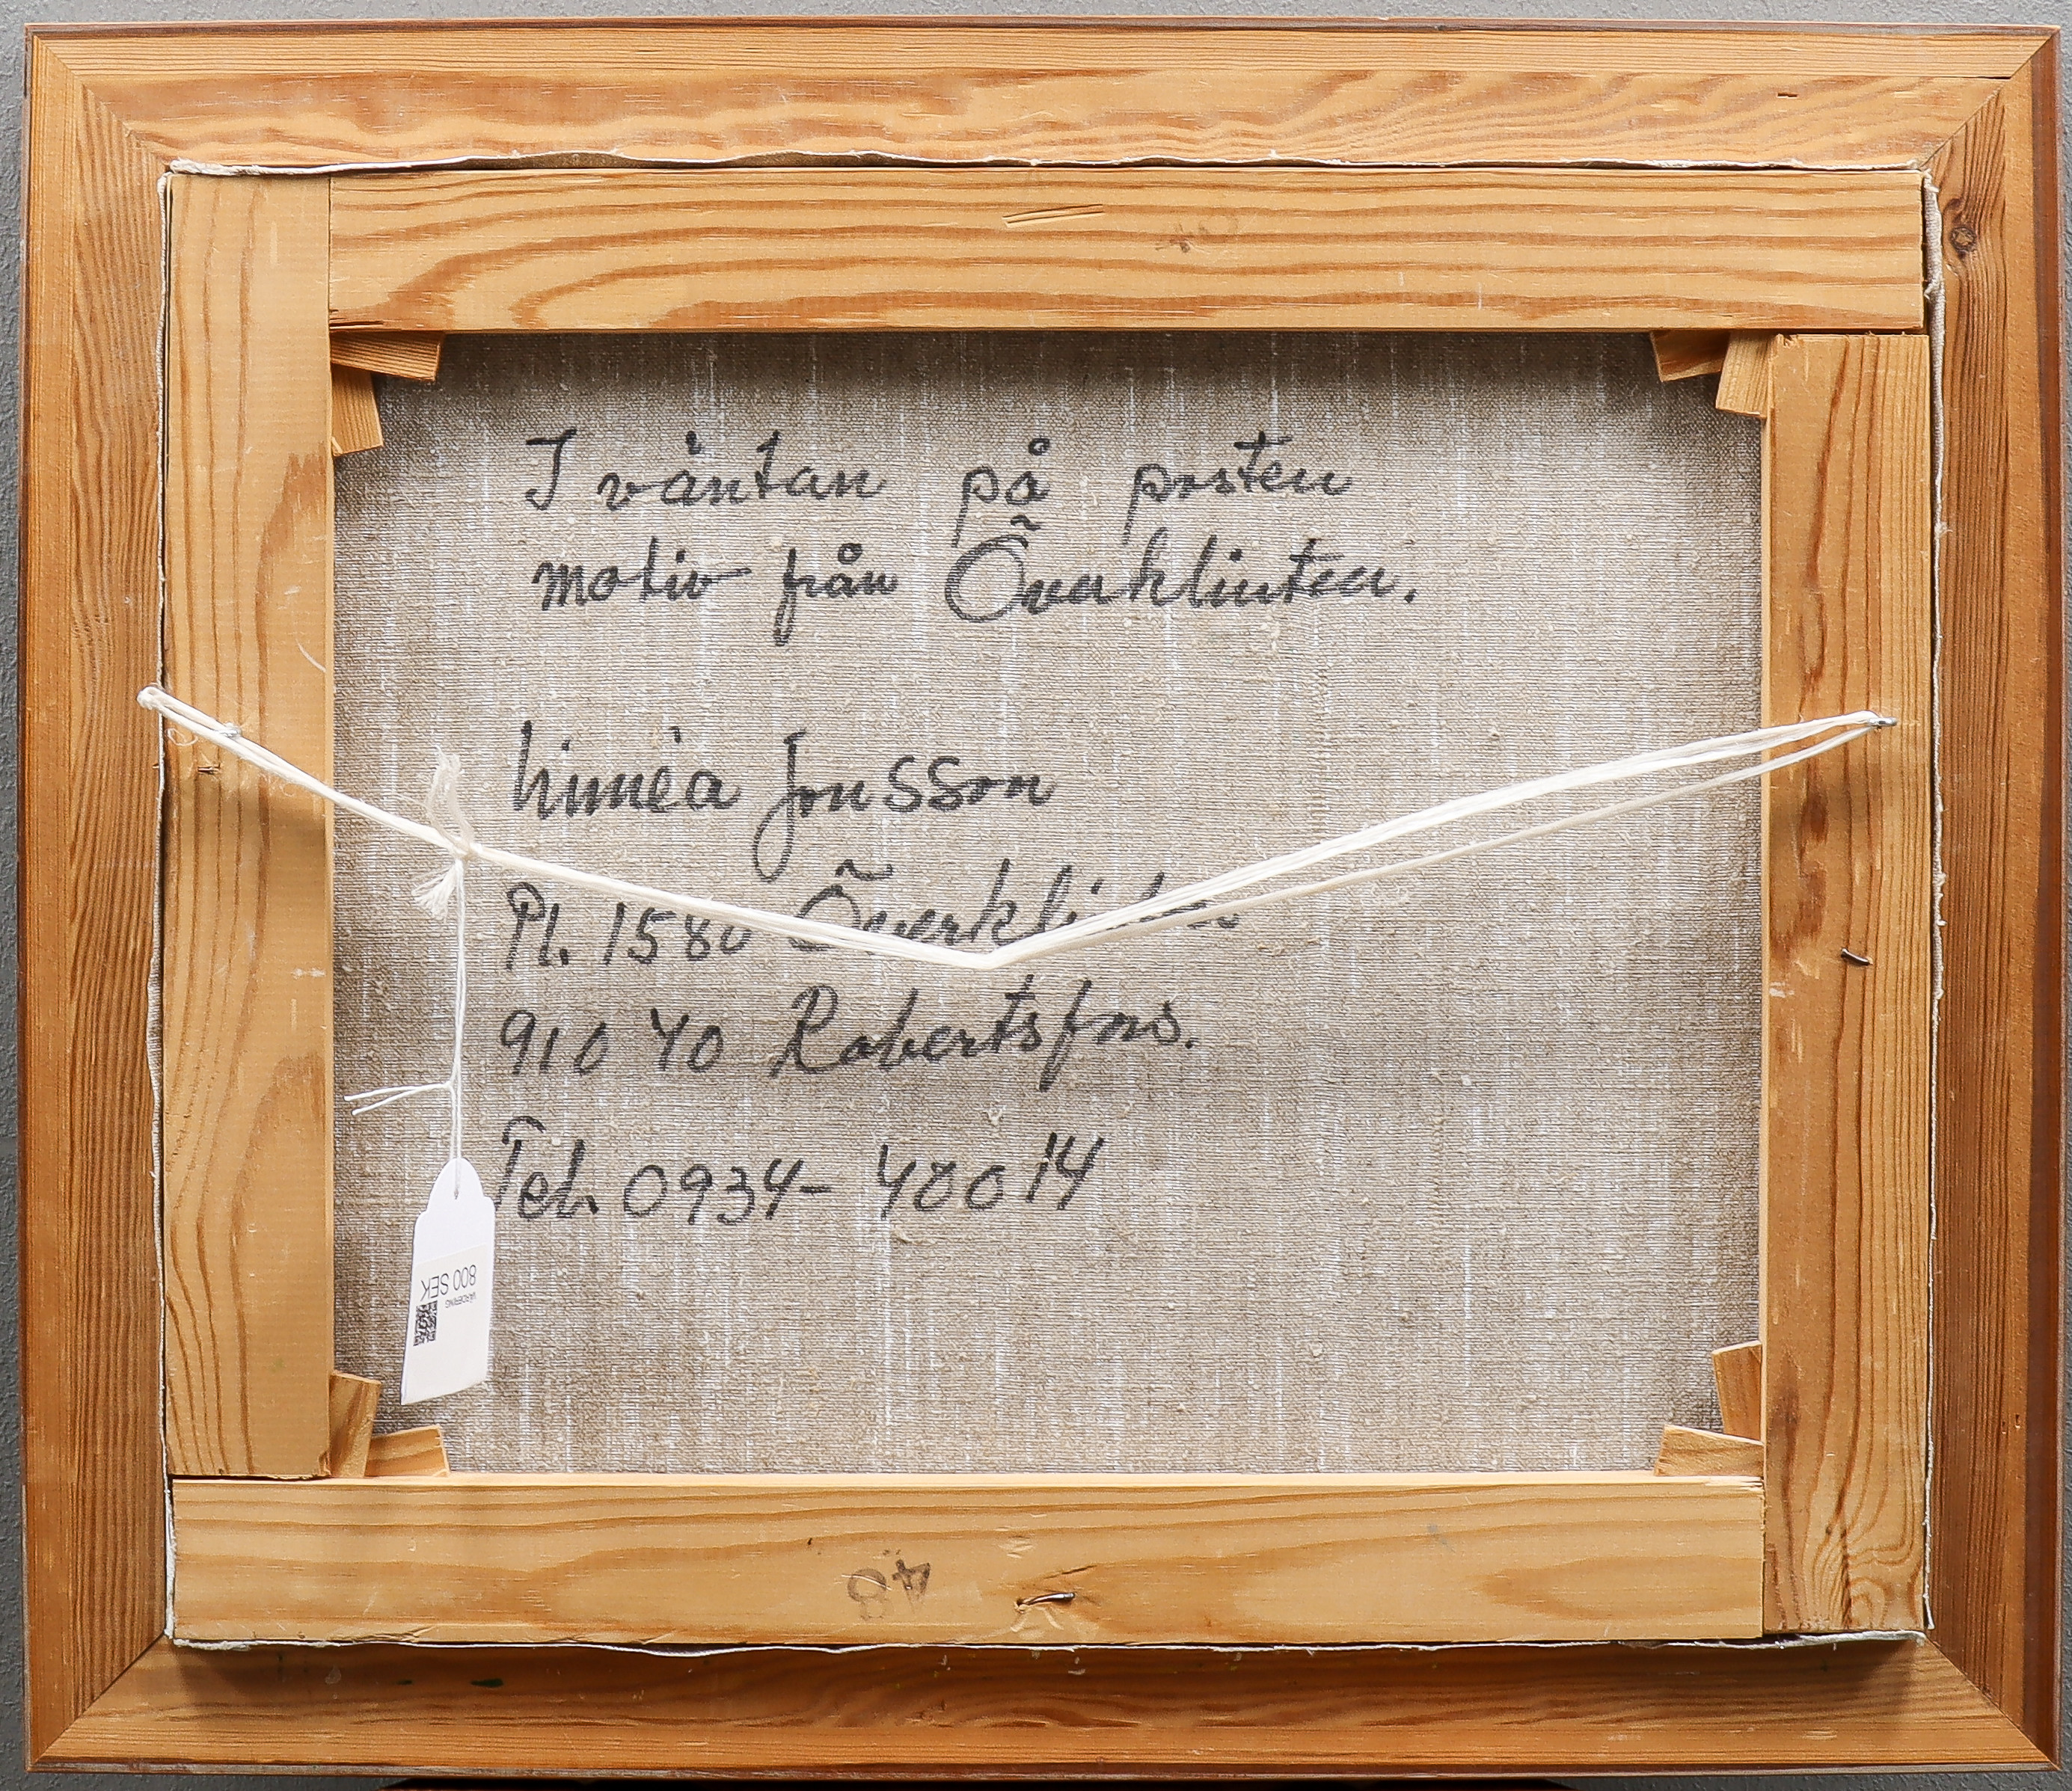 I väntan på posten
motiv från Överklinten.
Linnéa Jonsson
Pl. 1580 Överklinten
910 40 Robertsfors.
Tel. 0934-40014
800 SEK
VÄRDERING
48